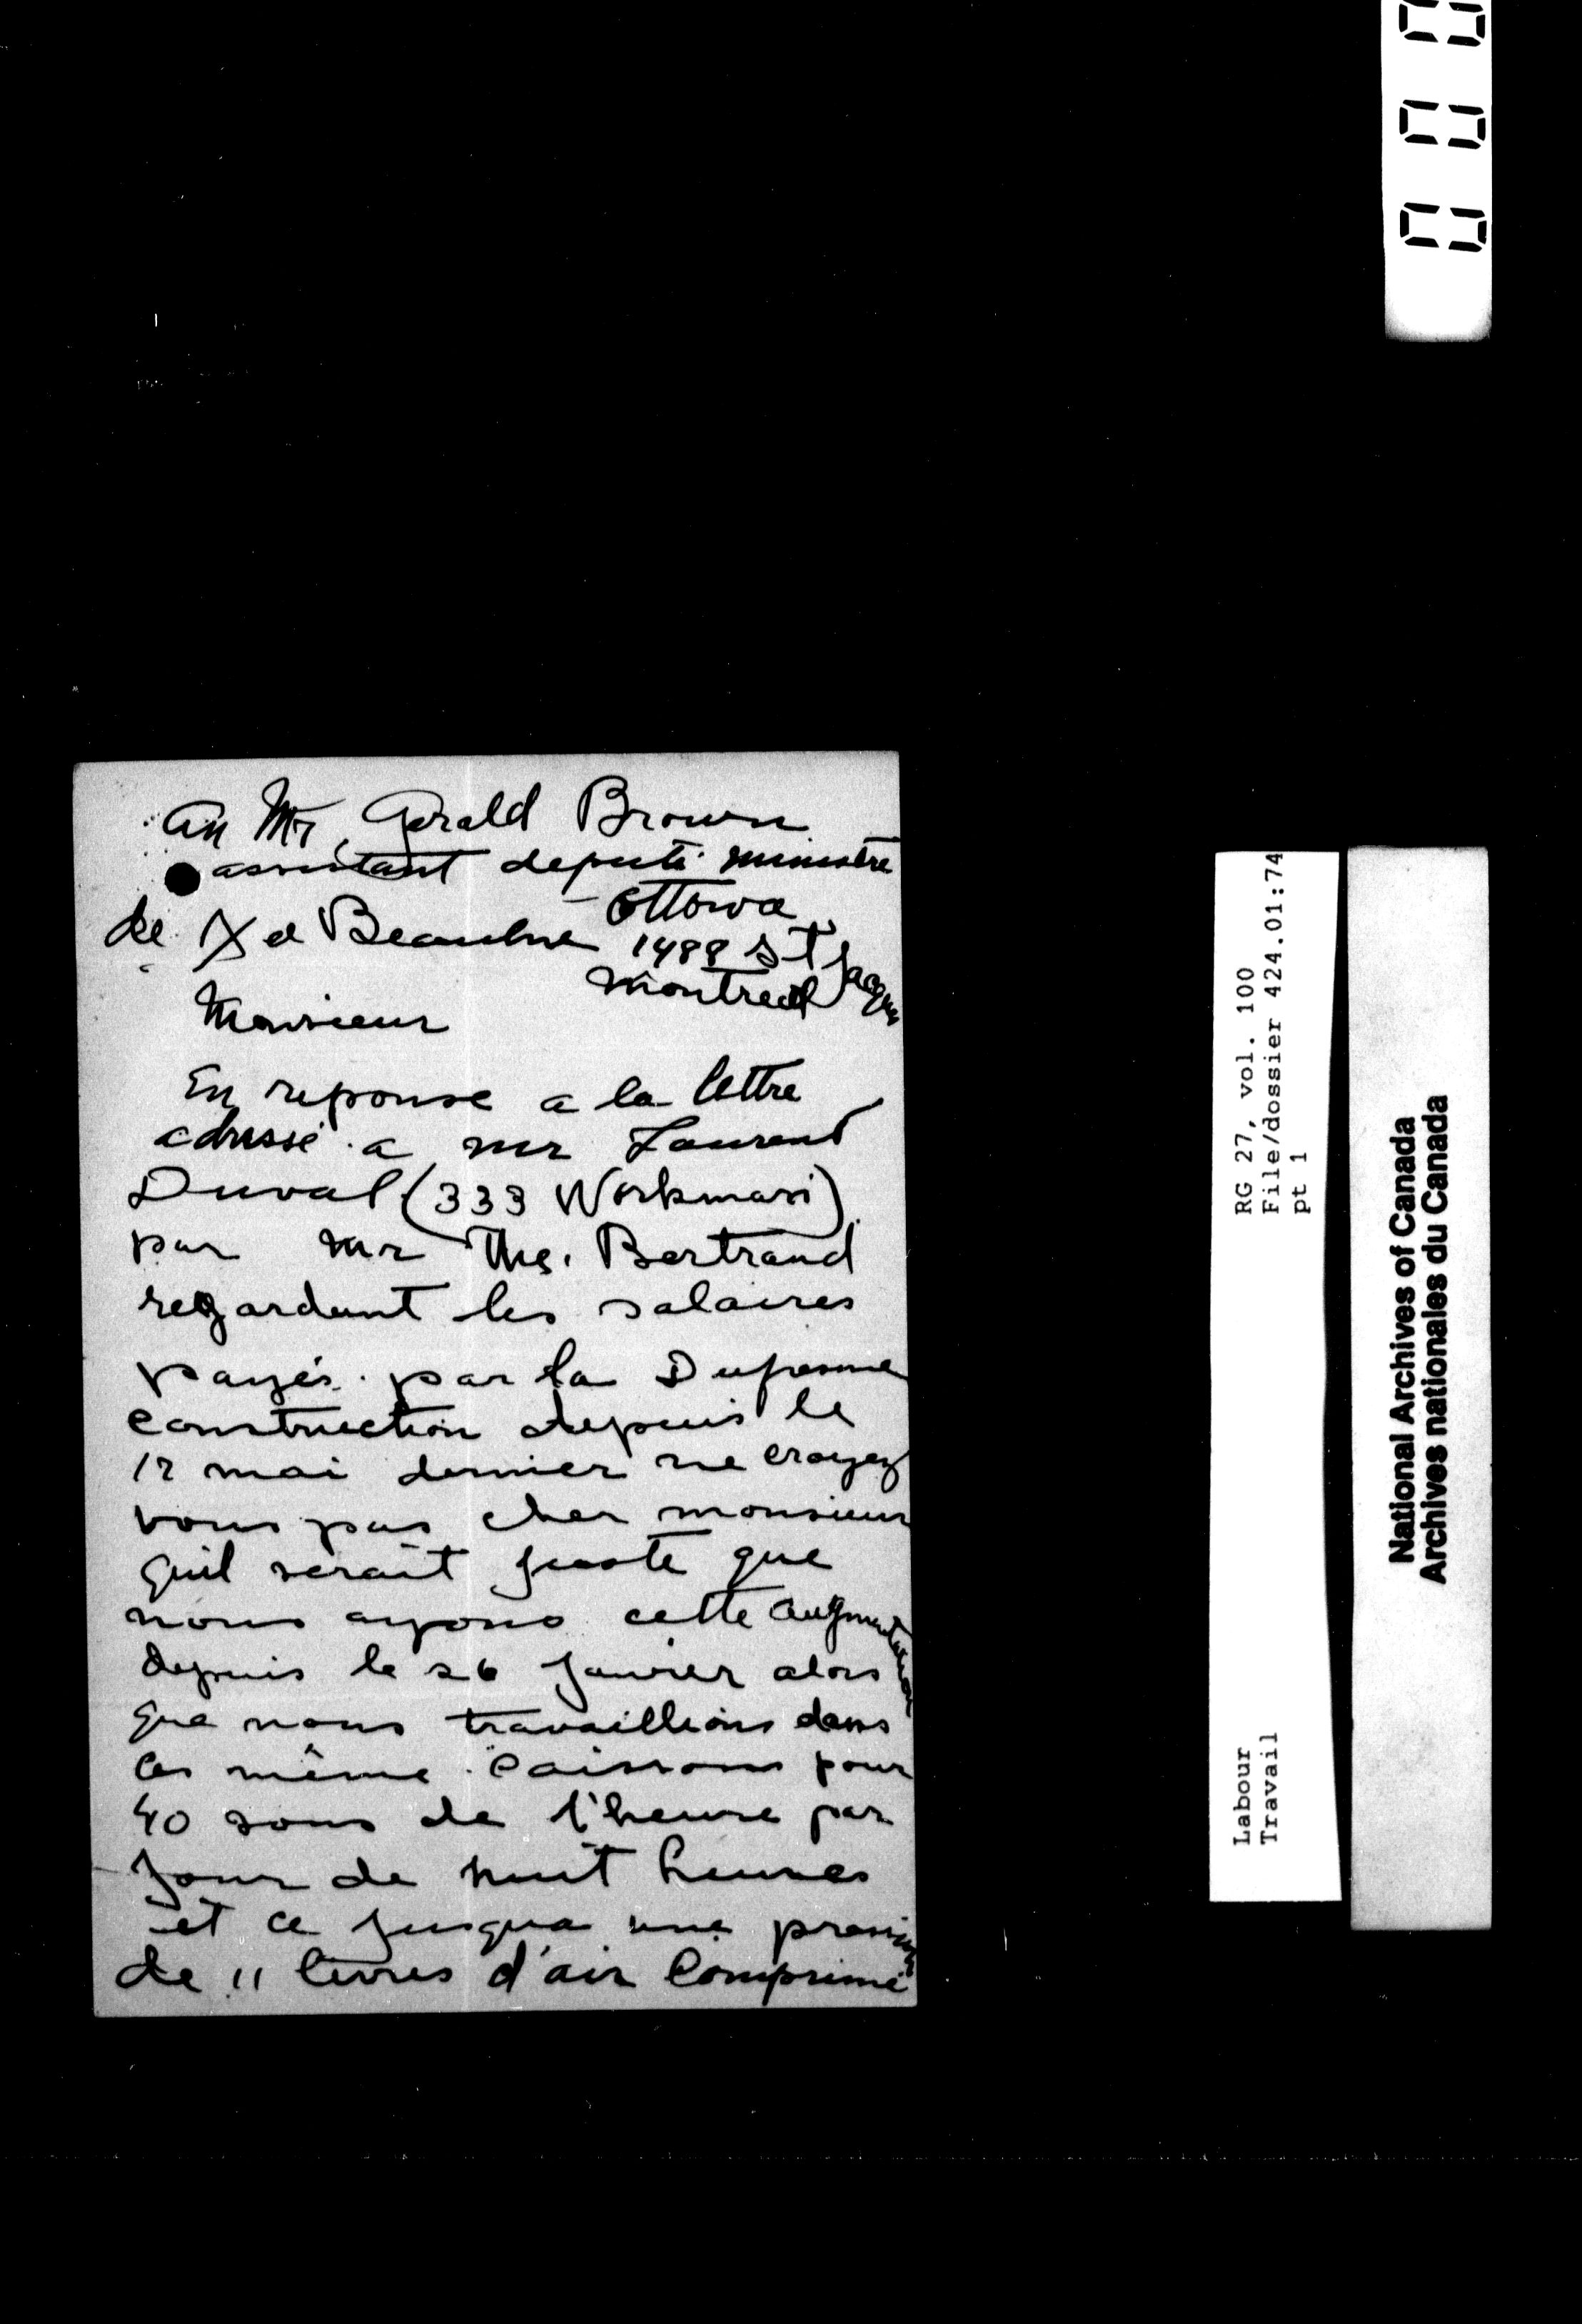 Au Mr Gerald Brown
assistant deputé ministre
Ottowa
de X d Beaulne 1488 St Jacques
Montreal
Monsieur
En reponse a la lettre
adressé a mr Laurent
Duval (333 Workman)
par mr Ths. Bertrand
regardant les salaires
payés par la Dufresne
construction depuis le
12 mai dernier ne croyez
vous pas cher monsieur
quil serait juste que
nous ayons cette augmentation
depuis le 26 janvier alors
que nous travaillions dans
les même caissons pour
40 sous de l'heure par
jour de huit heures
et ce jusqua une pression
de 11 livres d'air comprimé
RG 27, vol. 100
File/dossier 424.01:74
pt 1
Labour
Travail
National Archives of Canada
Archives nationales du Canada